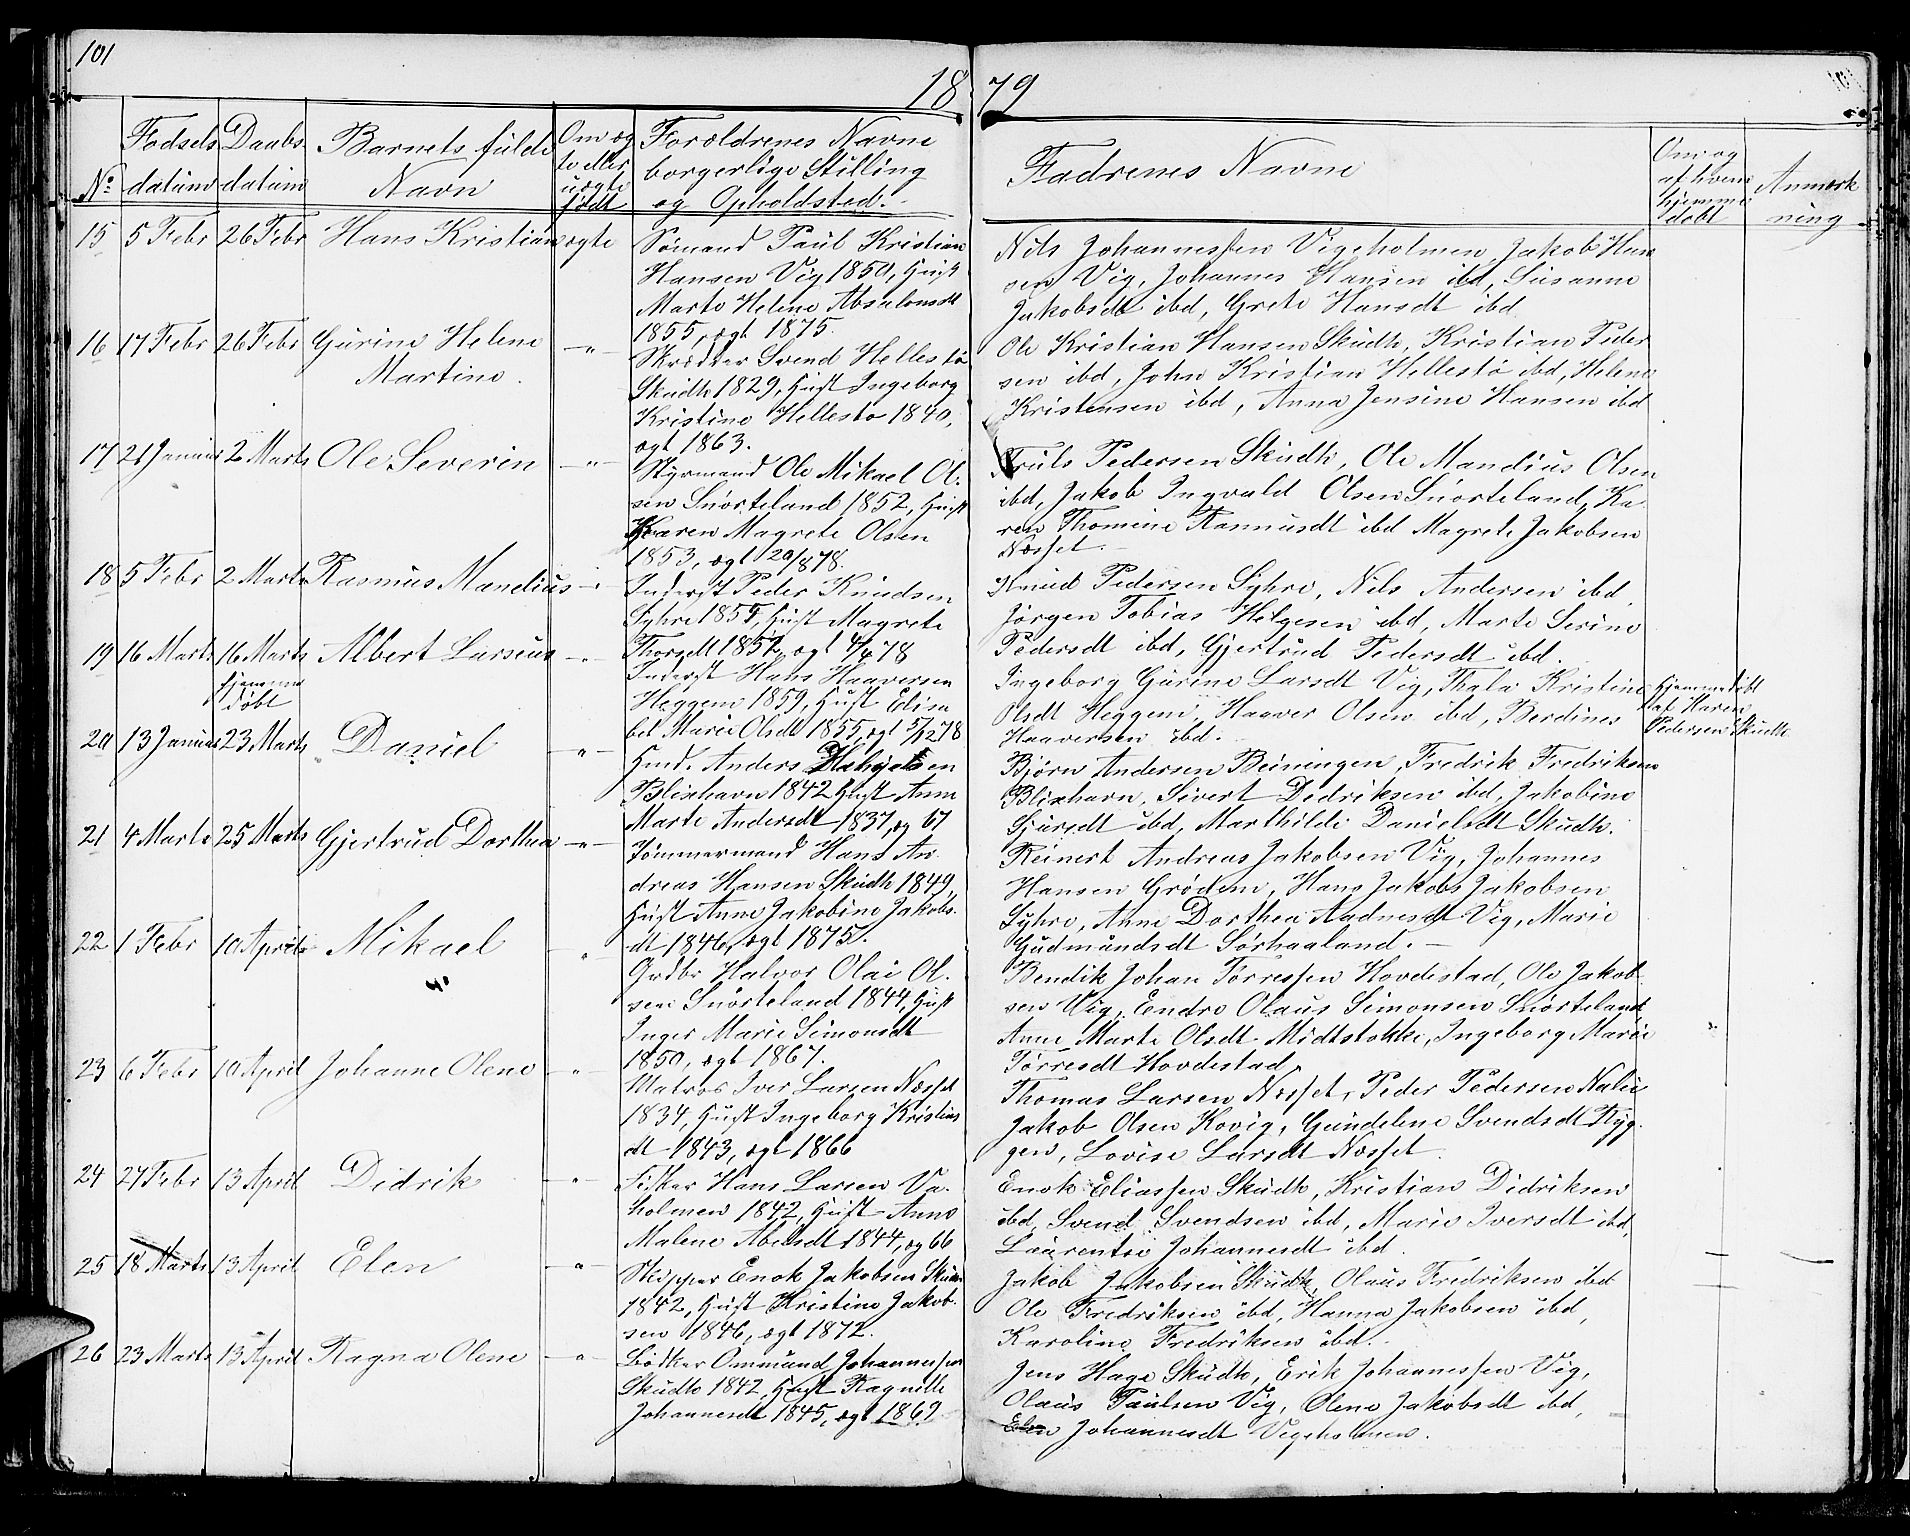 101
18 79
No
Fødsels datum
Daabs datum
Barnets fulde Navn
Om æg te eller uægte født
Forældrenes Navne borgerlige Stilling og Opholdsted.
Fadrenes Navne
Om og af hvem hjemme døbt
Anmærk ning
15 5 Febr 26 Febr Hans Kristian ægte
Sømand Paul Kristian
Hansen Vig 1850, Hust
Marte Helene Absalonsdt
1855, ægt 1875.
Nils Johannessen Vigeholmen, Jakob Han
sen Vig, Johannes Hansen ibd, Susanne
Jakobsdt ibd, Grete Hansdt ibd.
16 17 Febr 26 Febr Gurine Helene
Martine. –"–
Skrædder Svend Hellestø
Skudh 1829, Hust Ingeborg
Kristine Hellestø 1840,
ægt 1863.
Ole Kristian Hansen Skudh, Kristian Peder
sen ibd, John Kristian Hellestø ibd, Helene
Kristensen ibd, Anna Jensine Hansen ibd
17 21 Januar 2 Marts Ole Severin –"–
Styrmand Ole Mikael Ol.
sen Snørteland 1852, Hust
Karen Magrete Olsen
1853, ægt 20/878.
Truls Pedersen Skudh, Ole Mandius Olsen
ibd, Jakob Ingvald Olsen Snørteland, Ka
ren Thomine Rasmusdt ibd Magrete Jakobsen
Næsset.
18 5 Febr 2 Marts Rasmus Mandius –"–
Inderst Peder Knudsen
Syhre 1855, Hust Magrete
Thorsdt 1852, ægt 4/478
Knud Pedersen Syhre, Nils Andersen ibd,
Jørgen Tobias Helgesen ibd, Marte Serine
Pedersdt ibd, Gjertrud Pedersdt ibd.
19 16 Marts 16 Marts
hjemme
døbt
Albert Larsius –"–
Inderst Hans Haaversen
Heggem 1859, Hust Elisa
bet Marie Olsdt 1855, ægt 5/1278
Ingeborg Gurine Larsdt Vig, Thala Kristine
Olsdt Heggem, Haaver Olsen ibd, Berdines
Haaversen ibd.
Hjemmedøbt
af Karen
Pedersen Skudh
20 13 Januar 23 Marts Daniel –"–
Husm. Anders
Blixhavn 1842 Hust Anne
Marte Andersdt 1837, æg 67
Bjørn Andersen Beiningen, Fredrik Fredriksen
Blixhavn, Sivert Didriksen ibd, Jakobine
Sjursdt ibd, Marthilde Danielsdt Skudh.
21 4 Marts 25 Marts Gjertrud Dorthea –"–
Tømmermand Hans An.
dreas Hansen Skudh 1849,
Hust Anne Jakobine Jakobs.
dt 1846, ægt 1875.
Reinert Andreas Jakobsen Vig, Johannes
Hansen Grødem, Hans Jakob Jakobsen
Syhre, Anne Dorthea Aadnesdt Vig, Marie
Gudmundsdt Sørhaaland. –
22 1 Febr 10 April Mikael "
Grdbr Halvor Olai Ol.
sen Snørteland 1844, Hust
Inger Marie Simonsdt
1850, ægt 1867.
Bendik Johan Tørressen Hovdestad, Ole Jakob
sen Vig, Endre Olaus Simonsen Snørteland
Anne Marte Olsdt Midtstokke, Ingeborg Marie
Tørresdt Hovdestad
23 6 Febr 10 April Johanne Olene "
Matros Iver Larsen Næsset
1834, Hust Ingeborg Kristians
dt 1843, ægt 1866
Thomas Larsen Næsset, Peder Pedersen
Jakob Olsen Kovig, Gundelene Svendsdt Ryg.
gen, Lovise Larsdt Næsset.
24 27 Febr 13 April Didrik "
Fisker Hans Larsen Va.
holmen 1842, Hust Anne
Malene Abelsdt 1844, æg 66
Enok Eliassen Skudh, Kristian Didriksen
ibd, Svend Svendsen ibd, Marie Iversdt ibd,
Laurentse Johannesdt ibd.
25 18 Marts 13 April Elen –"–
Skipper Enok Jakobsen Skudh
1842, Hust Kristine Jakob.
sen 1846, ægt 1872.
Jakob Jakobsen Skudh, Olaus Fredriksen ibd
Ole Fredriksen ibd, Hanna Jakobsen ibd,
Karoline Fredriksen ibd.
26 23 Marts 13 April Ragna Olene –"–
Bødker Ommund Johannessen
Skudh 1842, Hust Ragnille
Johannesdt 1845, ægt 1869
Jens Hage Skudh, Erik Johannessen Vig,
Olaus Paulsen Vig, Olene Jakobsdt ibd,
Elen Johannesdt Vigeholmen.